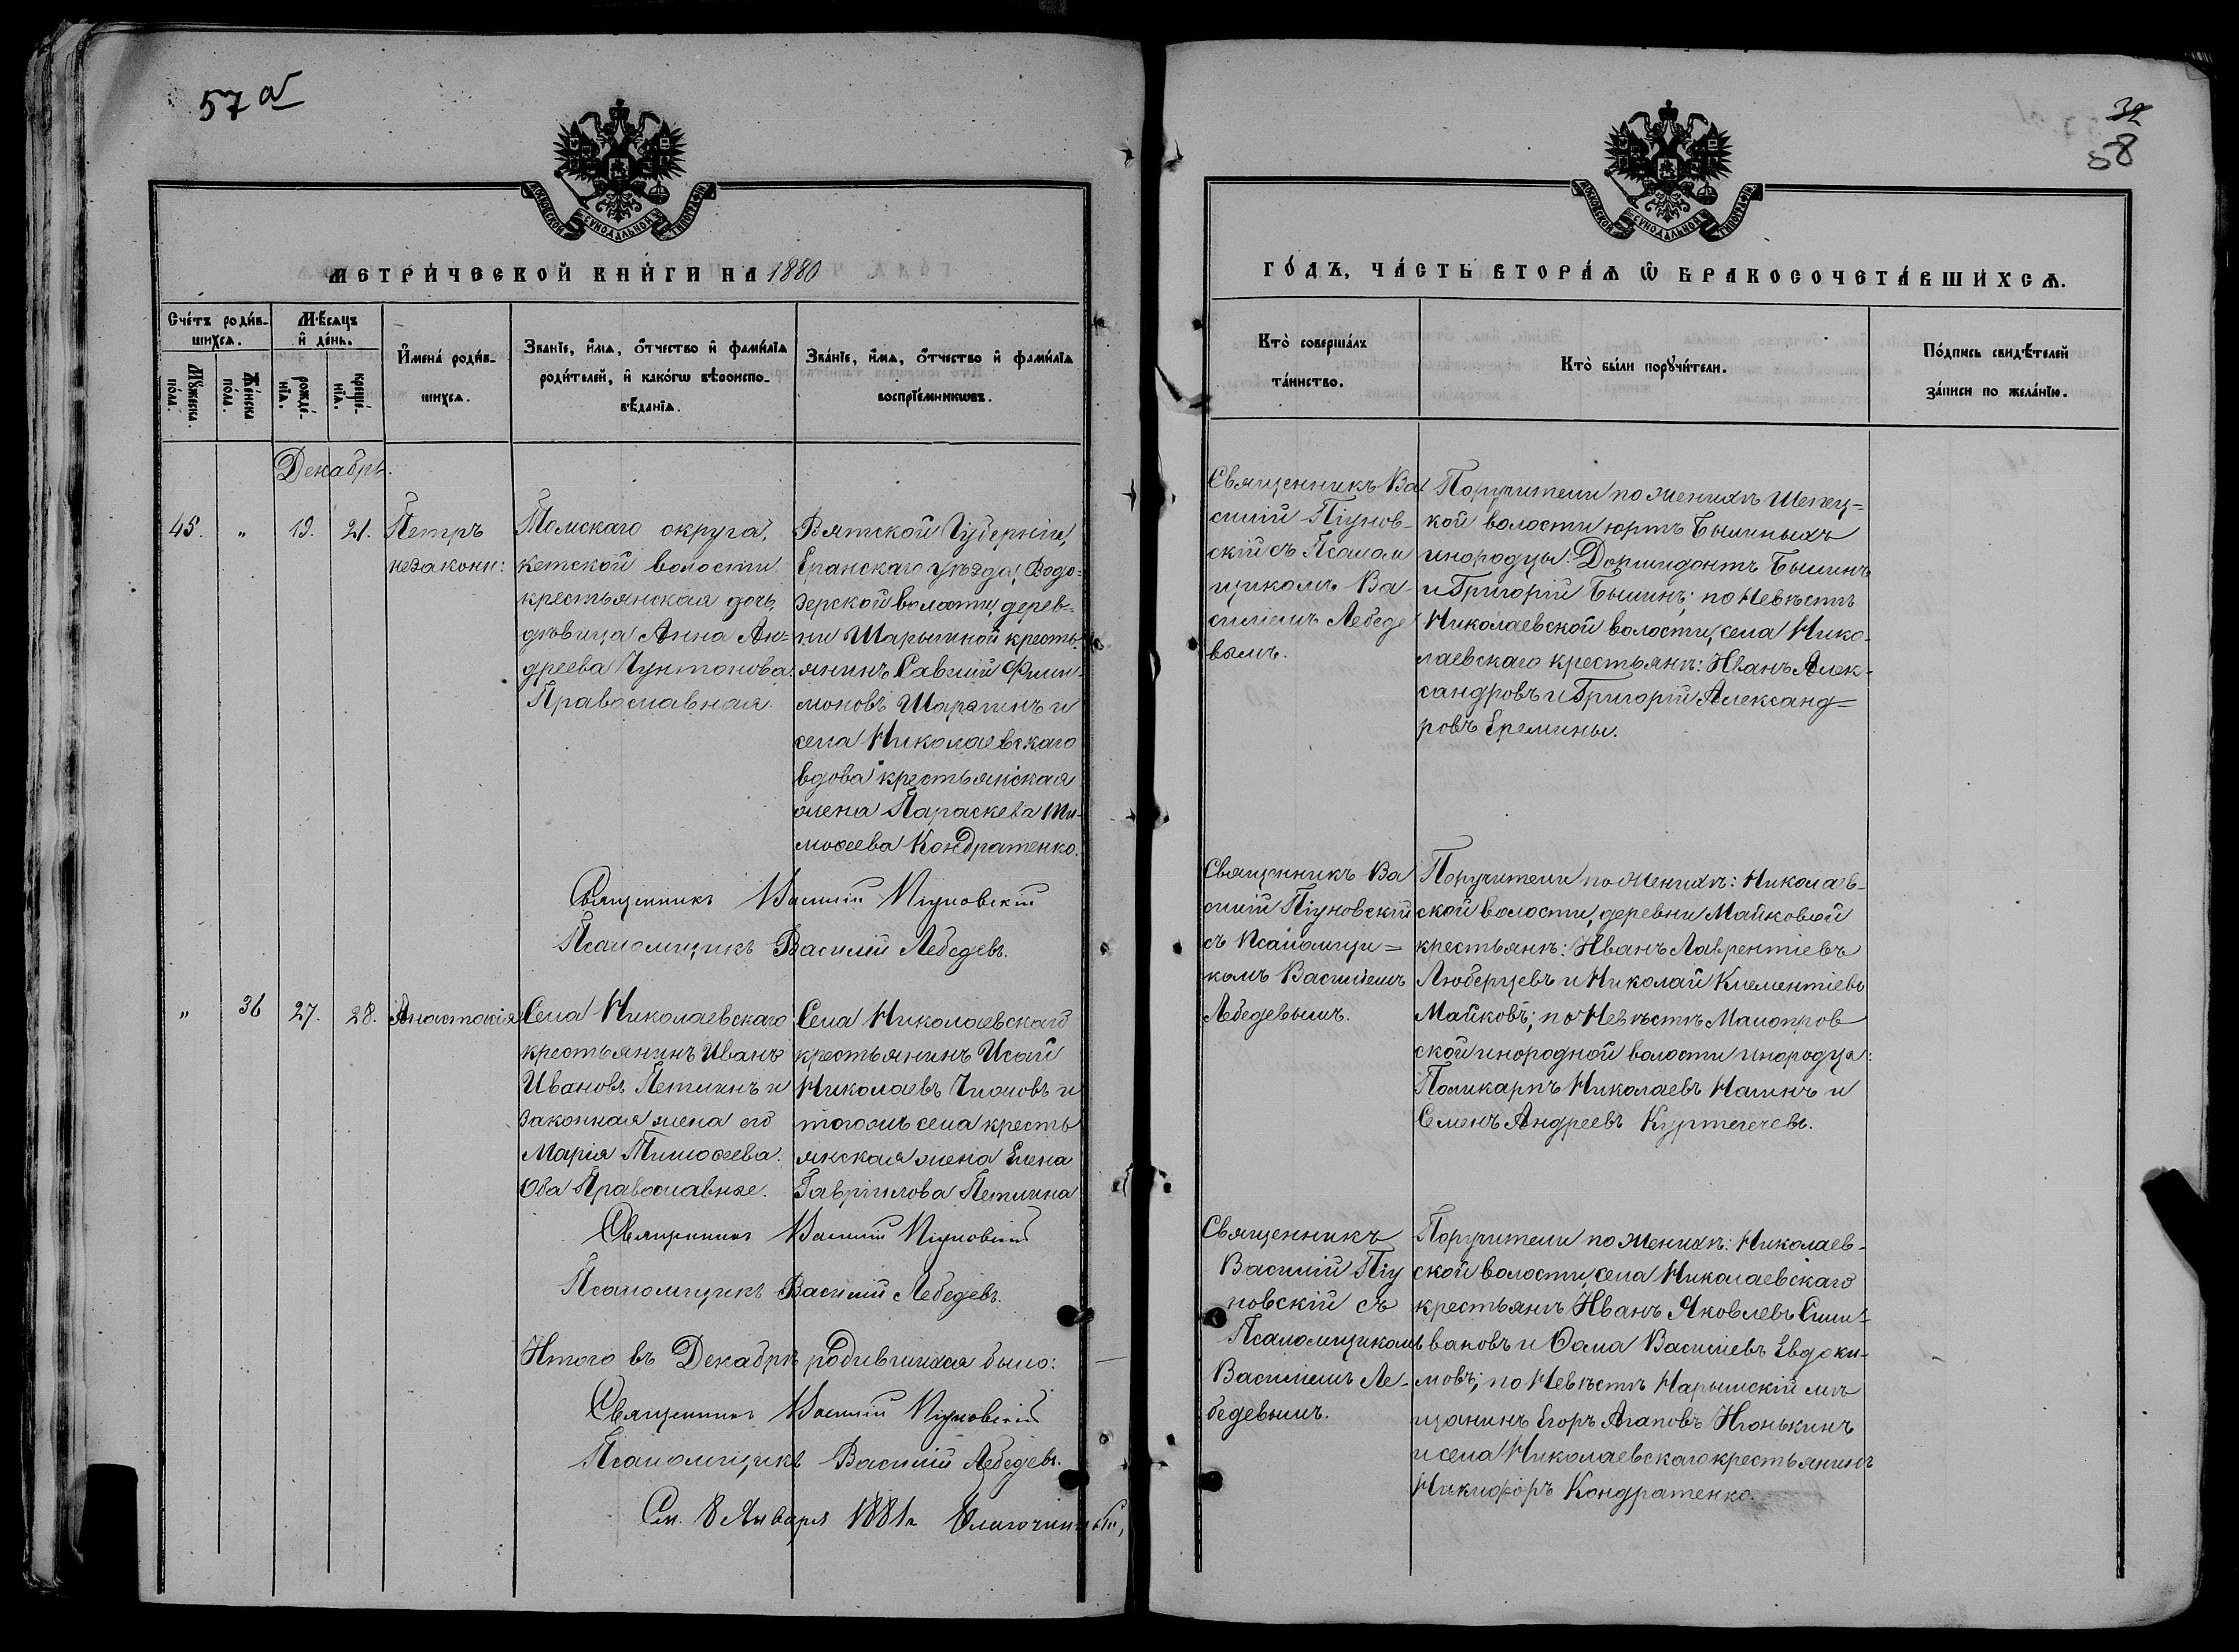 57 а
МОСКОВСКОЙ СУНОДАЛЬНОЙ ТИПОГРАФІИ
МЕТРИ́ЧЕСКОЙ КНИ́ГИ НА 1880
Сче́тъ роди́в-
шихсѧ.
Мѣ́сѧцъ
и҆ де́нь.
Мꙋ́жеска
по́ла.
Же́нска
по́ла.
рожде́-
нїѧ.
креще́-
нїѧ.
И҆мена̀ роди́в-
шихсѧ.
Зва́нїе, и҆́мѧ, ѻ҆́тчество и҆ фами́лїѧ
роди́телей, и҆ како́гѡ вѣроиспо-
вѣ́данїѧ.
Зва́нїе, и҆́мѧ, ѻ҆́тчество и҆ фами́лїѧ
воспрїе́мникѡвъ.
Декабрь.
45. " 19. 21.
Петръ
незаконн:
Томскаго округа,
кетской волости
крестьянская дочь,
дѣвица Анна Ан-
дреева Чунтонова.
Православная.
Вятской Губерніи,
Еранскаго уѣзда, Водо-
зерской волости, дерев-
ни Шарыгиной кресть-
янинъ Савелій Фили-
моновъ Шарапинъ и
села Николаевскаго
вдова крестьянская
жена Параскева Ти-
моѳеева Кондратенко.
Священникъ Василій Піуновскій
Псаломщикъ Василій Лебедевъ.
" 36 27. 28. Анастасія
Села Николаевскаго
крестьянинъ Иванъ
Ивановъ Петлинъ и
законная жена его
Марія Тимоѳеева.
Оба Православные.
Села Николаевскаго
крестьянинъ Исай
Николаевъ Чиановъ и
тогожъ села кресть
янская жена Елена
Гавріилова Петлина
Священникъ Василій Піуновскій
Псаломщикъ Василій Лебедевъ.
Итого въ Декабрѣ родившихся было: —
Священникъ Василій Піуновскій
Псаломщикъ Василій Лебедевъ.
См. 8 Января 1881 г. Благочинный,
32
58
МОСКОВСКОЙ СУНОДАЛЬНОЙ ТИПОГРАФІИ
ГО́ДЪ, ЧА́СТЬ ВТОРА́Ѧ Ѽ БРАКОСОЧЕТА́ВШИХСѦ.
Кто̀ соверша́лъ
та́инство.
Кто̀ бы́ли порꙋчи́тели.
По́дпись свидѣ́телей
за́писи по жела́нїю.
Священникъ Ва
силій Піунов-
скій съ Псалом
щикомъ Ва-
силіемъ Лебеде
вымъ.
Поручители по женихѣ Шепец-
кой волости юртъ Былиныхъ
инородцы: Доримидонтъ Былинъ
и Григорій Былинъ; по Невѣстѣ
Николаевской волости, села Нико-
лаевскаго крестьяне: Иванъ Алек-
сандровъ и Григорій Александ-
ровъ Еремины.
Священникъ Ва
силій Піуновскій
съ Псаломщи-
комъ Василіемъ
Лебедевымъ.
Поручители по Женихѣ: Николаев-
ской волости, деревни Майковой
крестьяне: Иванъ Лаврентіевъ
Люберцевъ и Николай Климентіевъ
Майковъ; по Невѣстѣ
ской инородной волости инородцы:
Поликарпъ Николаевъ и
Семенъ Андреевъ
Священникъ
Василій Піу
новскій съ
Псаломщикомъ
Василіемъ Ле-
бедевымъ.
Поручители по Женихѣ: Николаев-
ской волости, села Николаевскаго
крестьяне Иванъ Яковлевъ Сили-
вановъ и Ѳома Василіевъ Евдоки-
мовъ; по Невѣстѣ Нарымскій мѣ
щанинъ Егоръ Агаповъ Нюнькинъ
и села Николаевскаго крестьянинъ
Никифоръ Кондратенко.